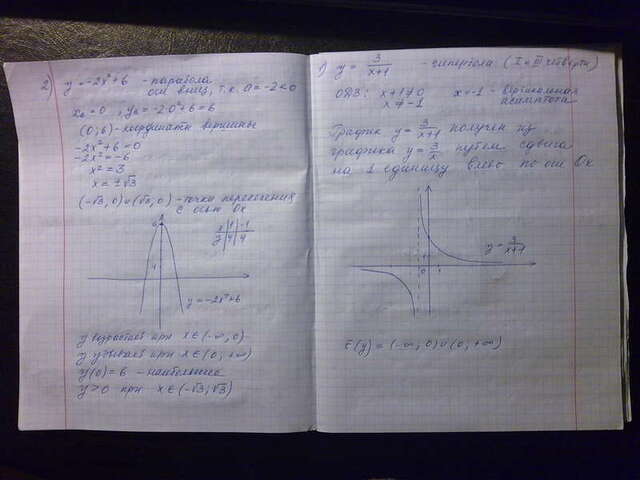 2) y = -2x²+6 - парабола
оси вниз, т.к. a = -2 < 0
x₀ = 0 ; y₀ = -2·0²+6 = 6
(0; 6) - координаты вершины
-2x²+6 = 0
-2x² = -6
x² = 3
x = ±√3
(-√3, 0) и (√3, 0) - точки пересечения
с осью Ox
x | 1 | -1
y | 4 | 4
6
1
y = -2x²+6
y возрастает при x ∈ (-∞, 0)
y убывает при x ∈ (0; +∞)
y(0) = 6 - наибольшее
y > 0 при x ∈ (-√3; √3)
1) y = 3/(x+1) - гипербола (I и III четверти)
ОДЗ: x+1 ≠ 0 x = -1 - вертикальная
x ≠ -1 асимптота
График y = 3/(x+1) получен из
графика y = 3/x путём сдвига
на 1 единицу влево по оси Ox
y = 3/(x+1)
1
0 1
E(y) = (-∞, 0) ∪ (0; +∞)